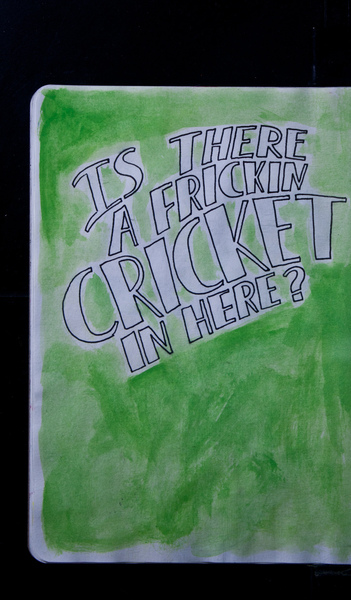 IS THERE
A FRICKIN
CRICKET
IN HERE?